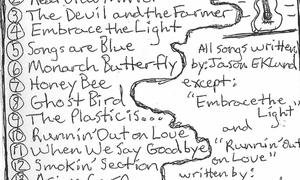 ③ The Devil and the Farmer
④ Embrace the Light
⑤ Songs are Blue
⑥ Monarch Butterfly
⑦ Honey Bee
⑧ Ghost Bird
⑨ The Plastic is...
⑩ Runnin' Out on Love
⑪ When We Say Goodbye
⑫ Smokin' Section
All songs written
by: Jason Eklund
except:
"Embrace the
Light"
and
"Runnin' Out
on Love"
written by: